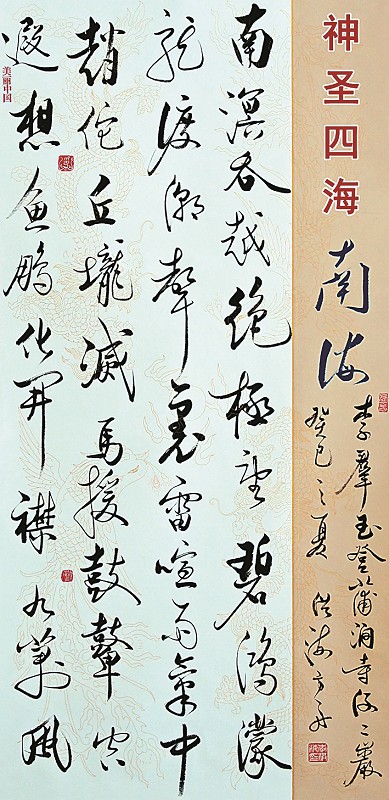 神圣四海
南海
李羣玉登蒲涧寺後二巖
癸巳之夏
南溟吞越絶極望碧鴻濛
龍渡潮聲裏雷喧雨氣中
趙佗丘壠滅馬援鼓鼙空
遐想魚鵬化開襟九萬風
美丽中国